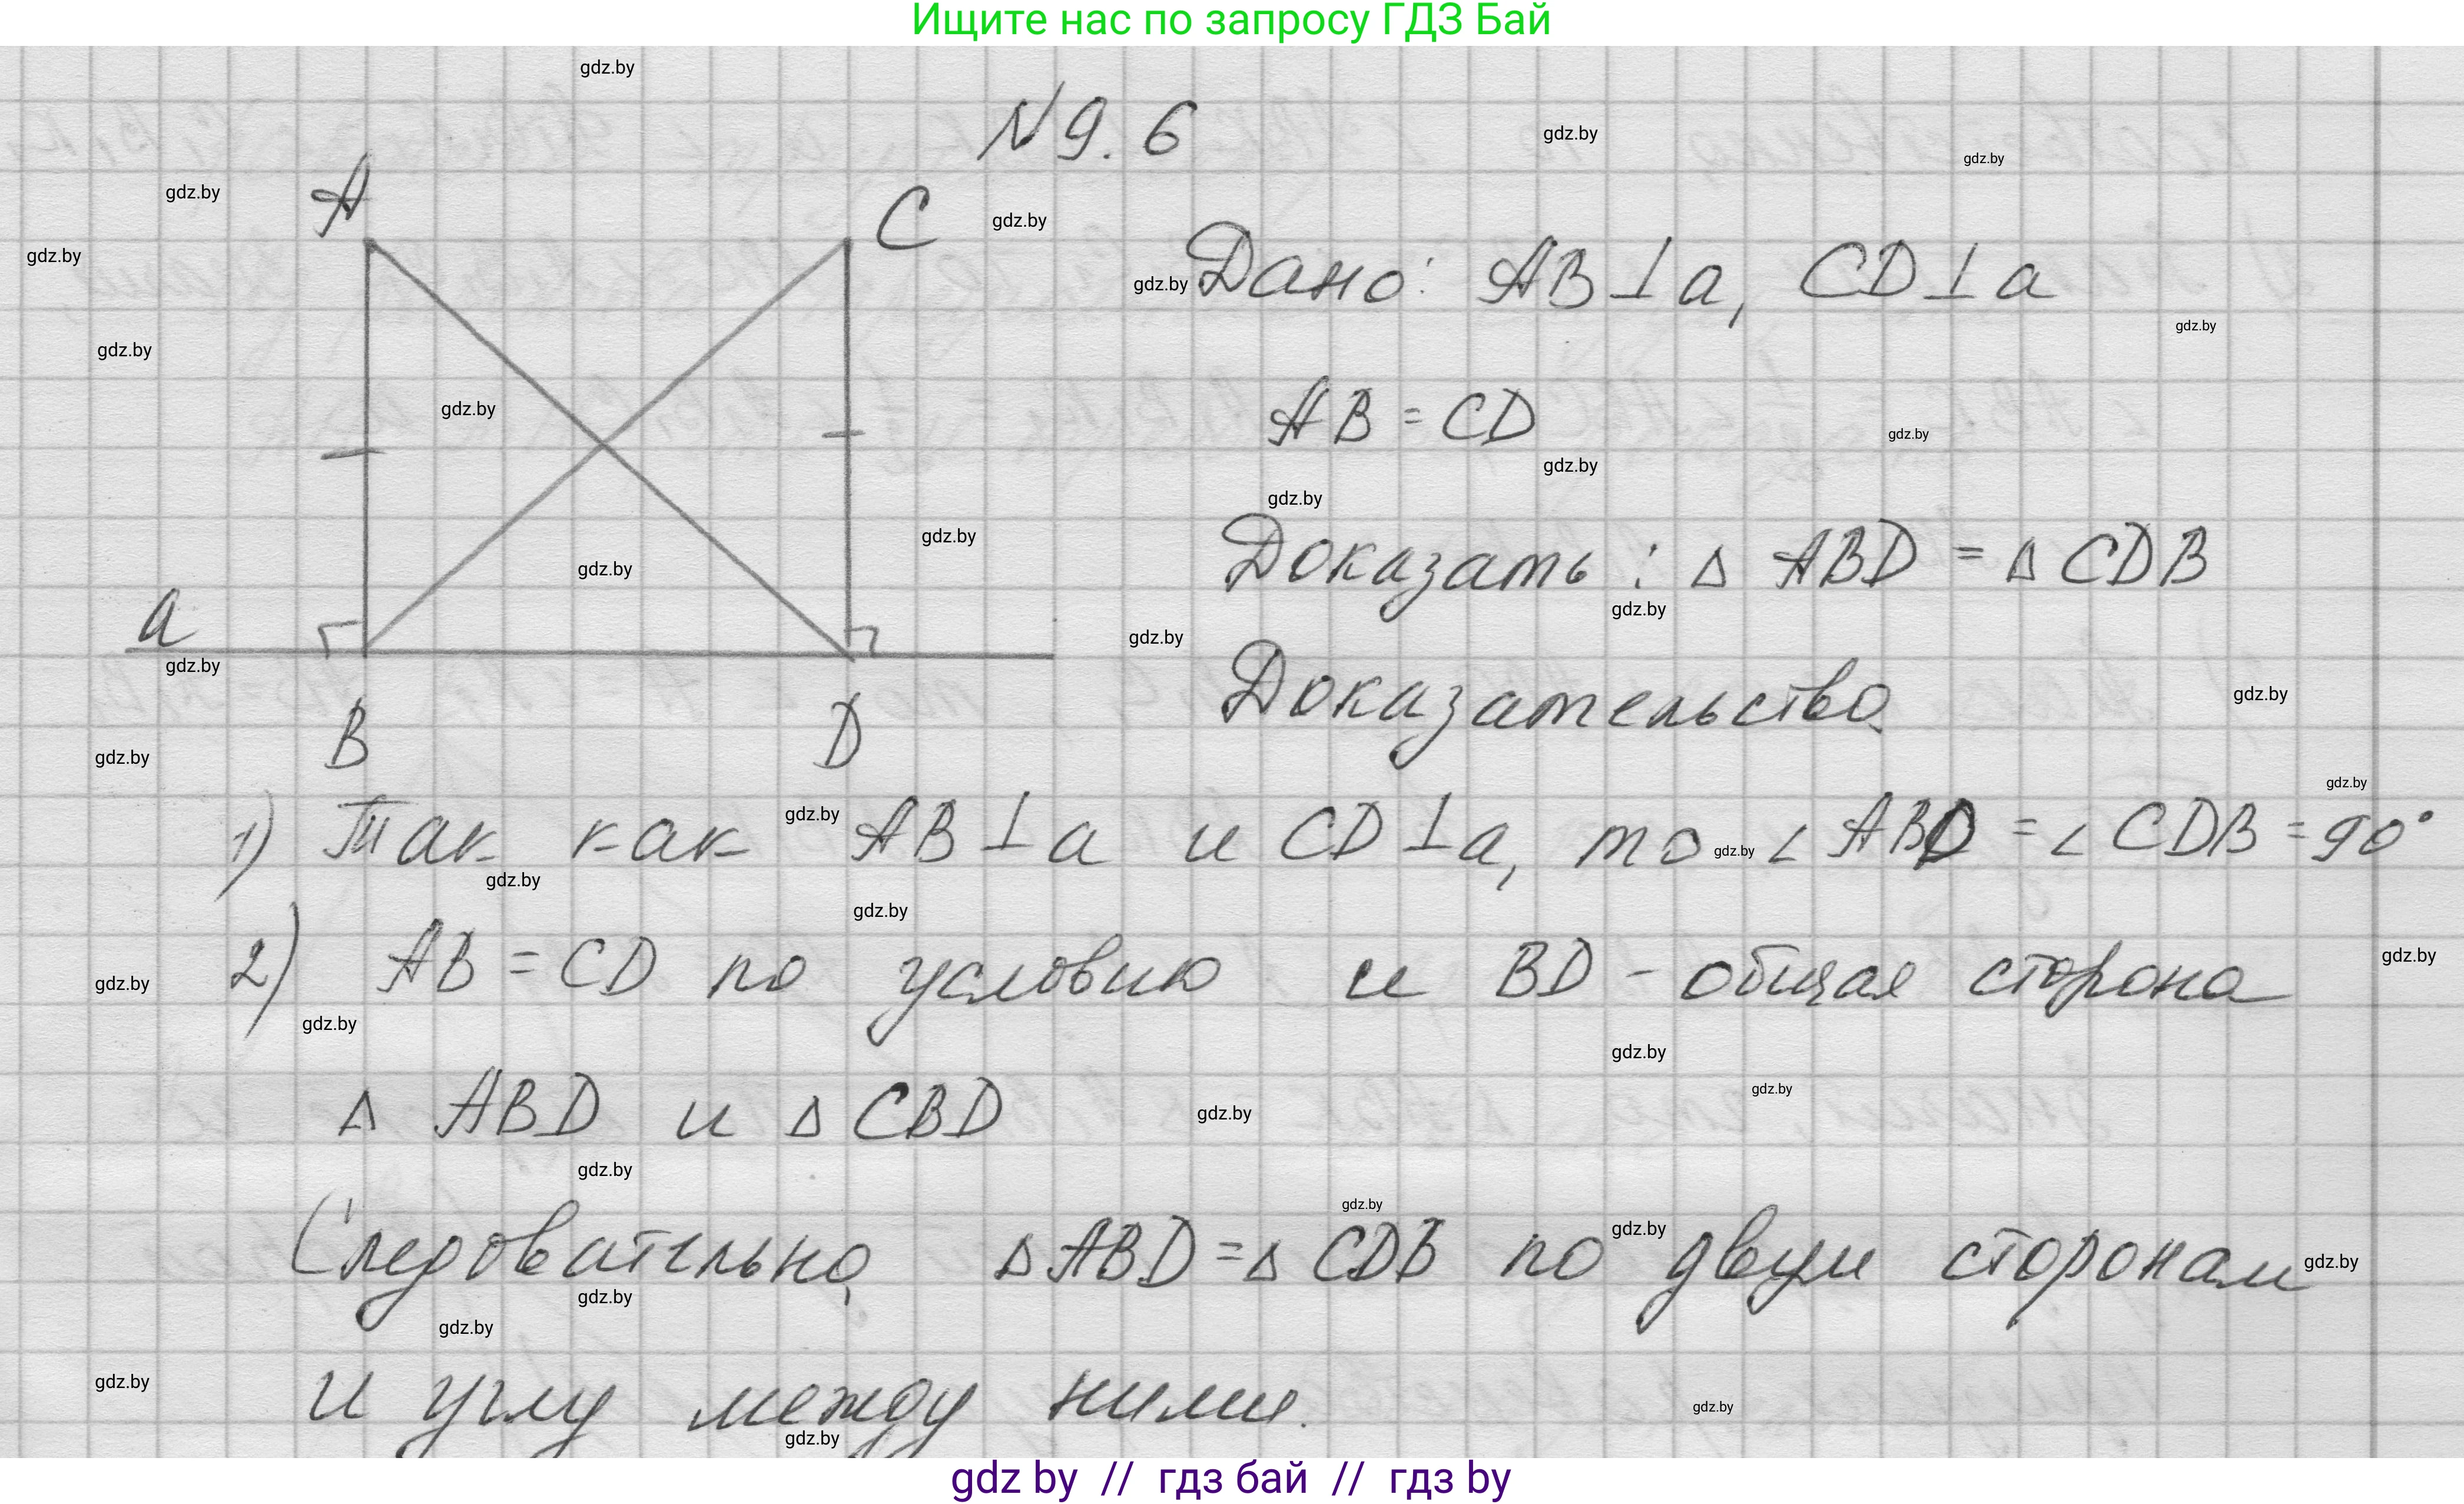 Ищите нас по запросу ГДЗ Бай
gdz.by
N 9. 6
A
C
Дано: AB ⊥ a, CD ⊥ a
AB = CD
Доказать : Δ ABD = Δ CDB
a
Доказательство.
B
D
1) Так как AB ⊥ a и CD ⊥ a, то ∠ ABD = ∠ CDB = 90°
2) AB = CD по условию и BD - общая сторона
Δ ABD и Δ CBD
Следовательно, Δ ABD = Δ CDB по двум сторонам
и углу между ними.
gdz by // гдз бай // гдз by